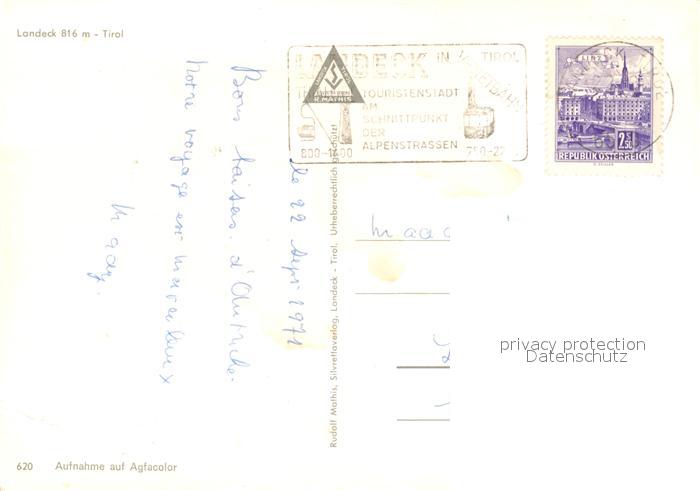 Landeck 816 m - Tirol
le 22 Sept 1971
Bons baisers d'Autriche.
Notre voyage est merveilleux
Mady.
LANDECK IN TIROL
TOURISTENSTADT
AM
SCHNITTPUNKT
DER
ALPENSTRASSEN
R. MATHIS
LINZ
2 S
REPUBLIK ÖSTERREICH
Rudolf Mathis, Silvrettaverlag, Landeck - Tirol. Urheberrechtlich geschützt!
privacy protection
Datenschutz
620 Aufnahme auf Agfacolor